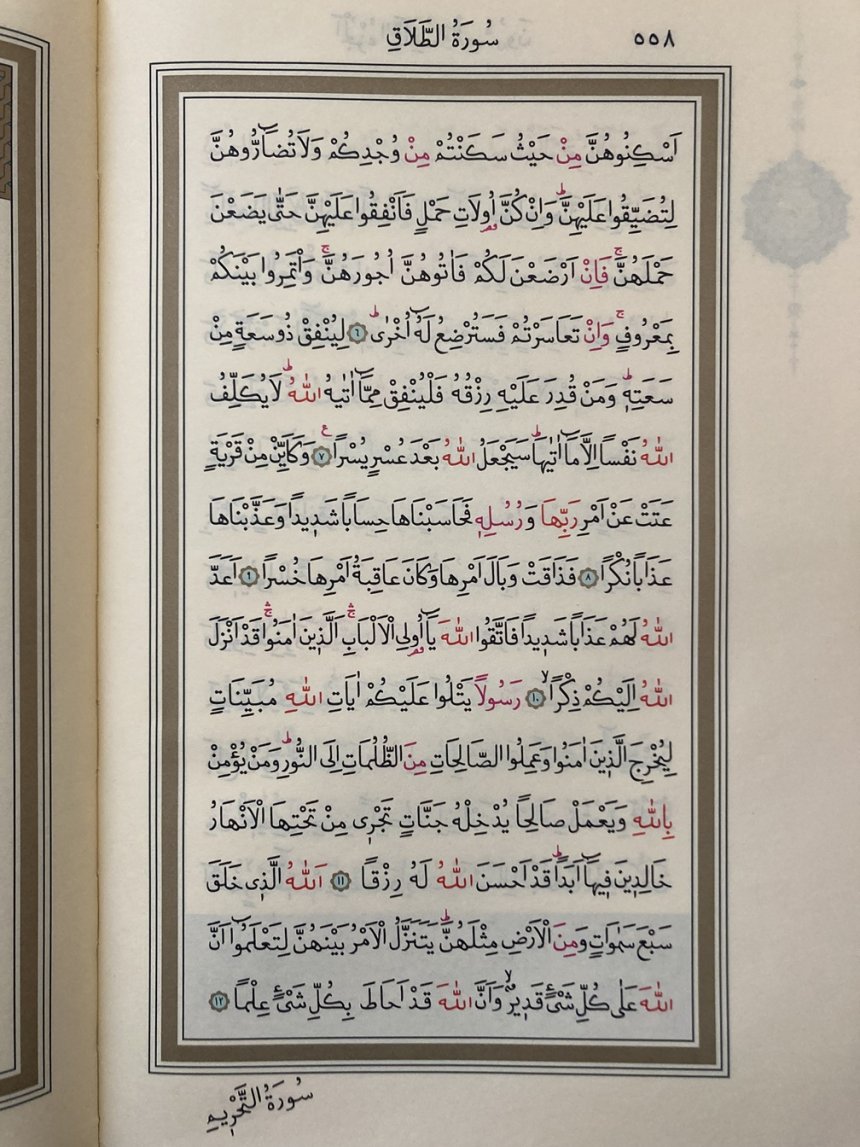 سُورَةُ الطَّلَاقِ ٥٥٨
اَسْكِنُوهُنَّ مِنْ حَيْثُ سَكَنْتُمْ مِنْ وُجْدِكُمْ وَلَا تُضَٓارُّوهُنَّ
لِتُضَيِّقُوا عَلَيْهِنَّۜ وَاِنْ كُنَّ اُو۬لَاتِ حَمْلٍ فَاَنْفِقُوا عَلَيْهِنَّ حَتّٰى يَضَعْنَ
حَمْلَهُنَّۚ فَاِنْ اَرْضَعْنَ لَكُمْ فَاٰتُوهُنَّ اُجُورَهُنَّۚ وَأْتَمِرُوا بَيْنَكُمْ
بِمَعْرُوفٍۚ وَاِنْ تَعَاسَرْتُمْ فَسَتُرْضِعُ لَهُٓ اُخْرٰىۜ ﴿٦﴾ لِيُنْفِقْ ذُوسَعَةٍ مِنْ
سَعَتِه۪ۜ وَمَنْ قُدِرَ عَلَيْهِ رِزْقُهُ فَلْيُنْفِقْ مِمَّٓا اٰتٰيهُ اللّٰهُۜ لَا يُكَلِّفُ
اللّٰهُ نَفْسًا اِلَّا مَٓا اٰتٰيهَاۜ سَيَجْعَلُ اللّٰهُ بَعْدَ عُسْرٍ يُسْرًا۟ ﴿٧﴾ وَكَاَيِّنْ مِنْ قَرْيَةٍ
عَتَتْ عَنْ اَمْرِ رَبِّهَا وَرُسُلِه۪ فَحَاسَبْنَاهَا حِسَابًا شَد۪يدًا وَعَذَّبْنَاهَا
عَذَابًا نُكْرًا ﴿٨﴾ فَذَاقَتْ وَبَالَ اَمْرِهَا وَكَانَ عَاقِبَةُ اَمْرِهَا خُسْرًا ﴿٩﴾ اَعَدَّ
اللّٰهُ لَهُمْ عَذَابًا شَد۪يدًا فَاتَّقُوا اللّٰهَ يَٓا اُو۬لِي الْاَلْبَابِۚۛ اَلَّذ۪ينَ اٰمَنُواۚۛ قَدْ اَنْزَلَ
اللّٰهُ اِلَيْكُمْ ذِكْرًاۙ ﴿١٠﴾ رَسُولًا يَتْلُوا عَلَيْكُمْ اٰيَاتِ اللّٰهِ مُبَيِّنَاتٍ
لِيُخْرِجَ الَّذ۪ينَ اٰمَنُوا وَعَمِلُوا الصَّالِحَاتِ مِنَ الظُّلُمَاتِ اِلَى النُّورِۜ وَمَنْ يُؤْمِنْ
بِاللّٰهِ وَيَعْمَلْ صَالِحًا يُدْخِلْهُ جَنَّاتٍ تَجْر۪ي مِنْ تَحْتِهَا الْاَنْهَارُ
خَالِد۪ينَ ف۪يهَٓا اَبَدًاۜ قَدْ اَحْسَنَ اللّٰهُ لَهُ رِزْقًا ﴿١١﴾ اَللّٰهُ الَّذ۪ي خَلَقَ
سَبْعَ سَمٰوَاتٍ وَمِنَ الْاَرْضِ مِثْلَهُنَّۜ يَتَنَزَّلُ الْاَمْرُ بَيْنَهُنَّ لِتَعْلَمُٓوا اَنَّ
اللّٰهَ عَلٰى كُلِّ شَيْءٍ قَد۪يرٌۙ وَاَنَّ اللّٰهَ قَدْ اَحَاطَ بِكُلِّ شَيْءٍ عِلْمًا ﴿١٢﴾
سُورَةُ التَّحْر۪يمِ